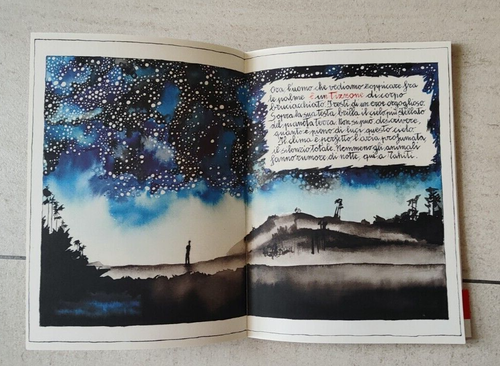 Ora l'uomo che vediamo zoppicare fra
le palme è un Tizzone di corpo
bruciacchiato. I resti di un eroe orgoglioso.
Sopra la sua testa brilla il cielo più stellato
del pianeta terra. Non si può descrivere,
quanto è pieno di luci questo cielo.
Il clima è perfetto, l'aria profumata,
il silenzio totale. Nemmeno gli animali
fanno rumore di notte, qui a Tahiti.